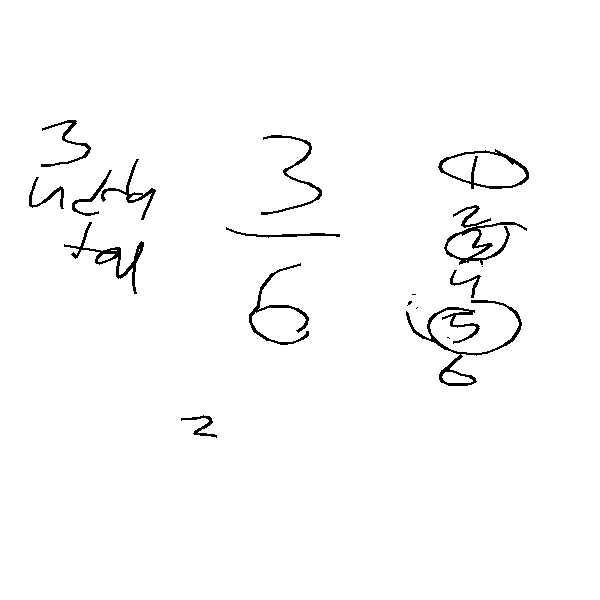 3
udda
tal
3
6
1
2
3
4
5
6
2